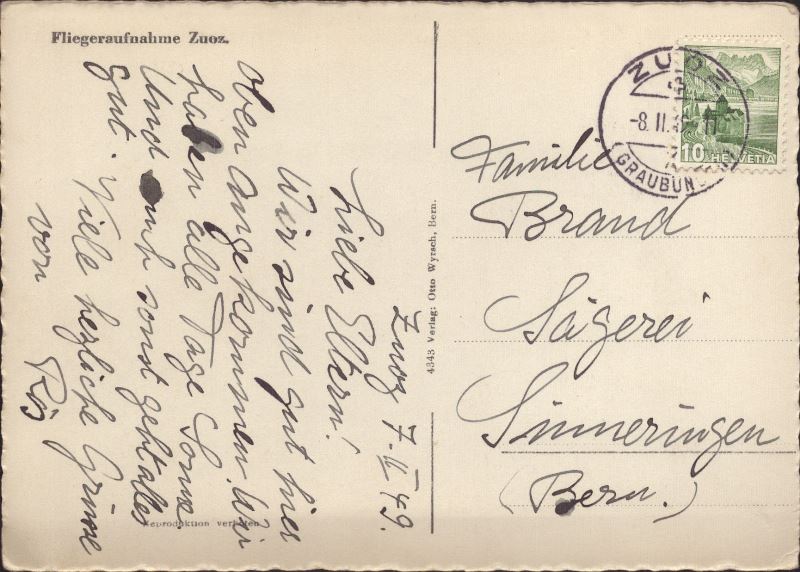 Fliegeraufnahme Zuoz.
Zuoz 7. II 49.
Liebe Eltern!
Wir sind gut hier
oben angekommen. Wir
haben alle Tage Sonne.
Und auch sonst geht alles
gut. Viele herzliche Grüsse
von
Rös
Reproduktion verboten
4343 Verlag: Otto Wyrsch, Bern.
ZUOZ
-8. II.
(GRAUBÜN
10 HELVETIA
Familie
Brand
Sägerei
Sinneringen
(Bern.)